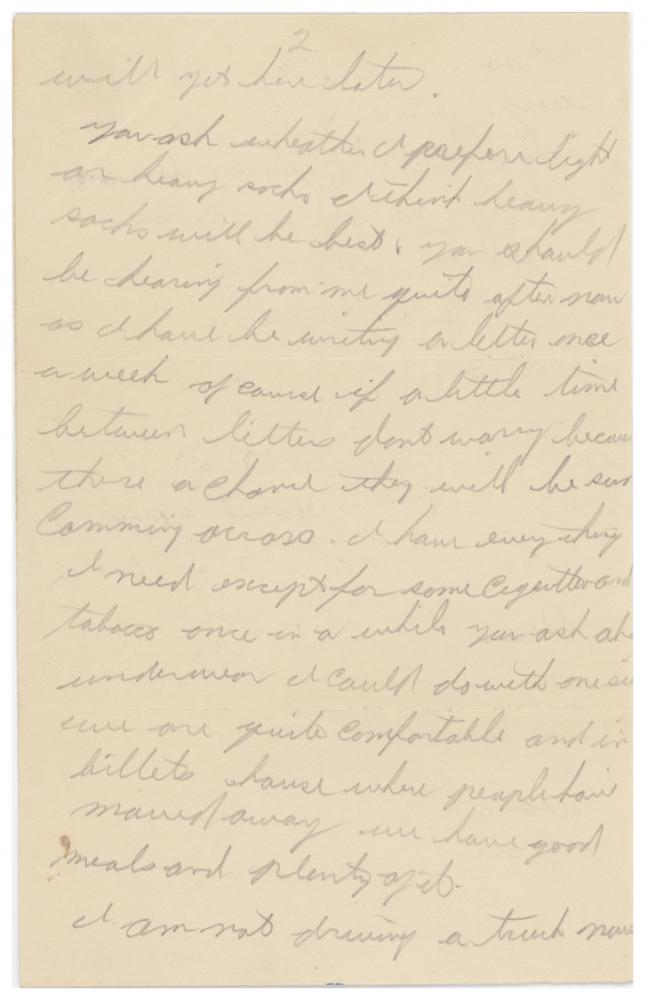 2
will get here later.
You ask wheather I preferr light
or heavy socks I think heavy
socks will be best, you should
be hearing from me quite often now
as I have be writing a letter once
a week of course if a little time
between letters dont worry becau
there a chance they will be sun
Comming across. I have everything
I need except for some Cigarettes and
tabacco once in a while you ask abo
underwear I could do with one su
we are quite comfortable and in
billets house where people have
moved away we have good
meals and plenty of it.
I am not driving a truck now